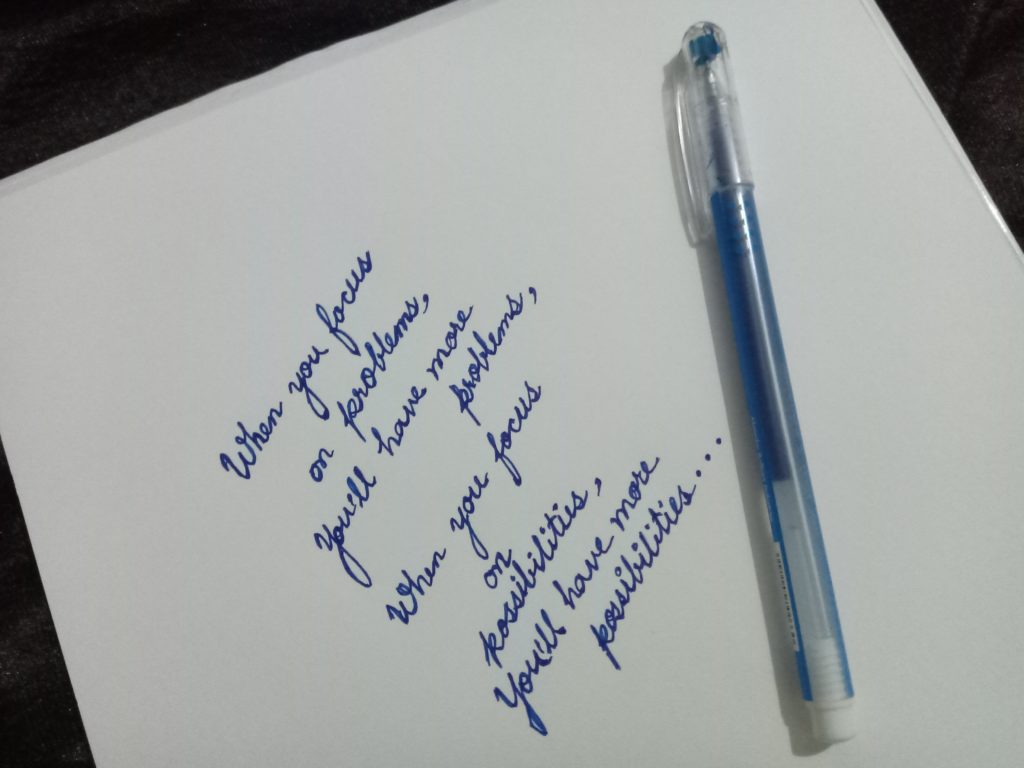 When you focus
on problems,
You'll have more
problems,
When you focus
on
possibilities,
You'll have more
possibilities...